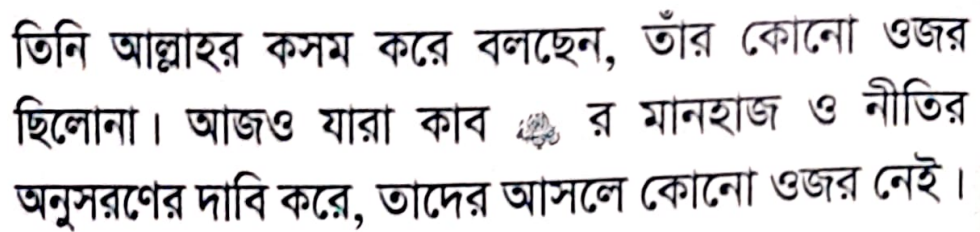 তিনি আল্লাহর কসম করে বলছেন, তাঁর কোনো ওজর
ছিলোনা। আজও যারা কাব র মানহাজ ও নীতির
অনুসরণের দাবি করে, তাদের আসলে কোনো ওজর নেই।